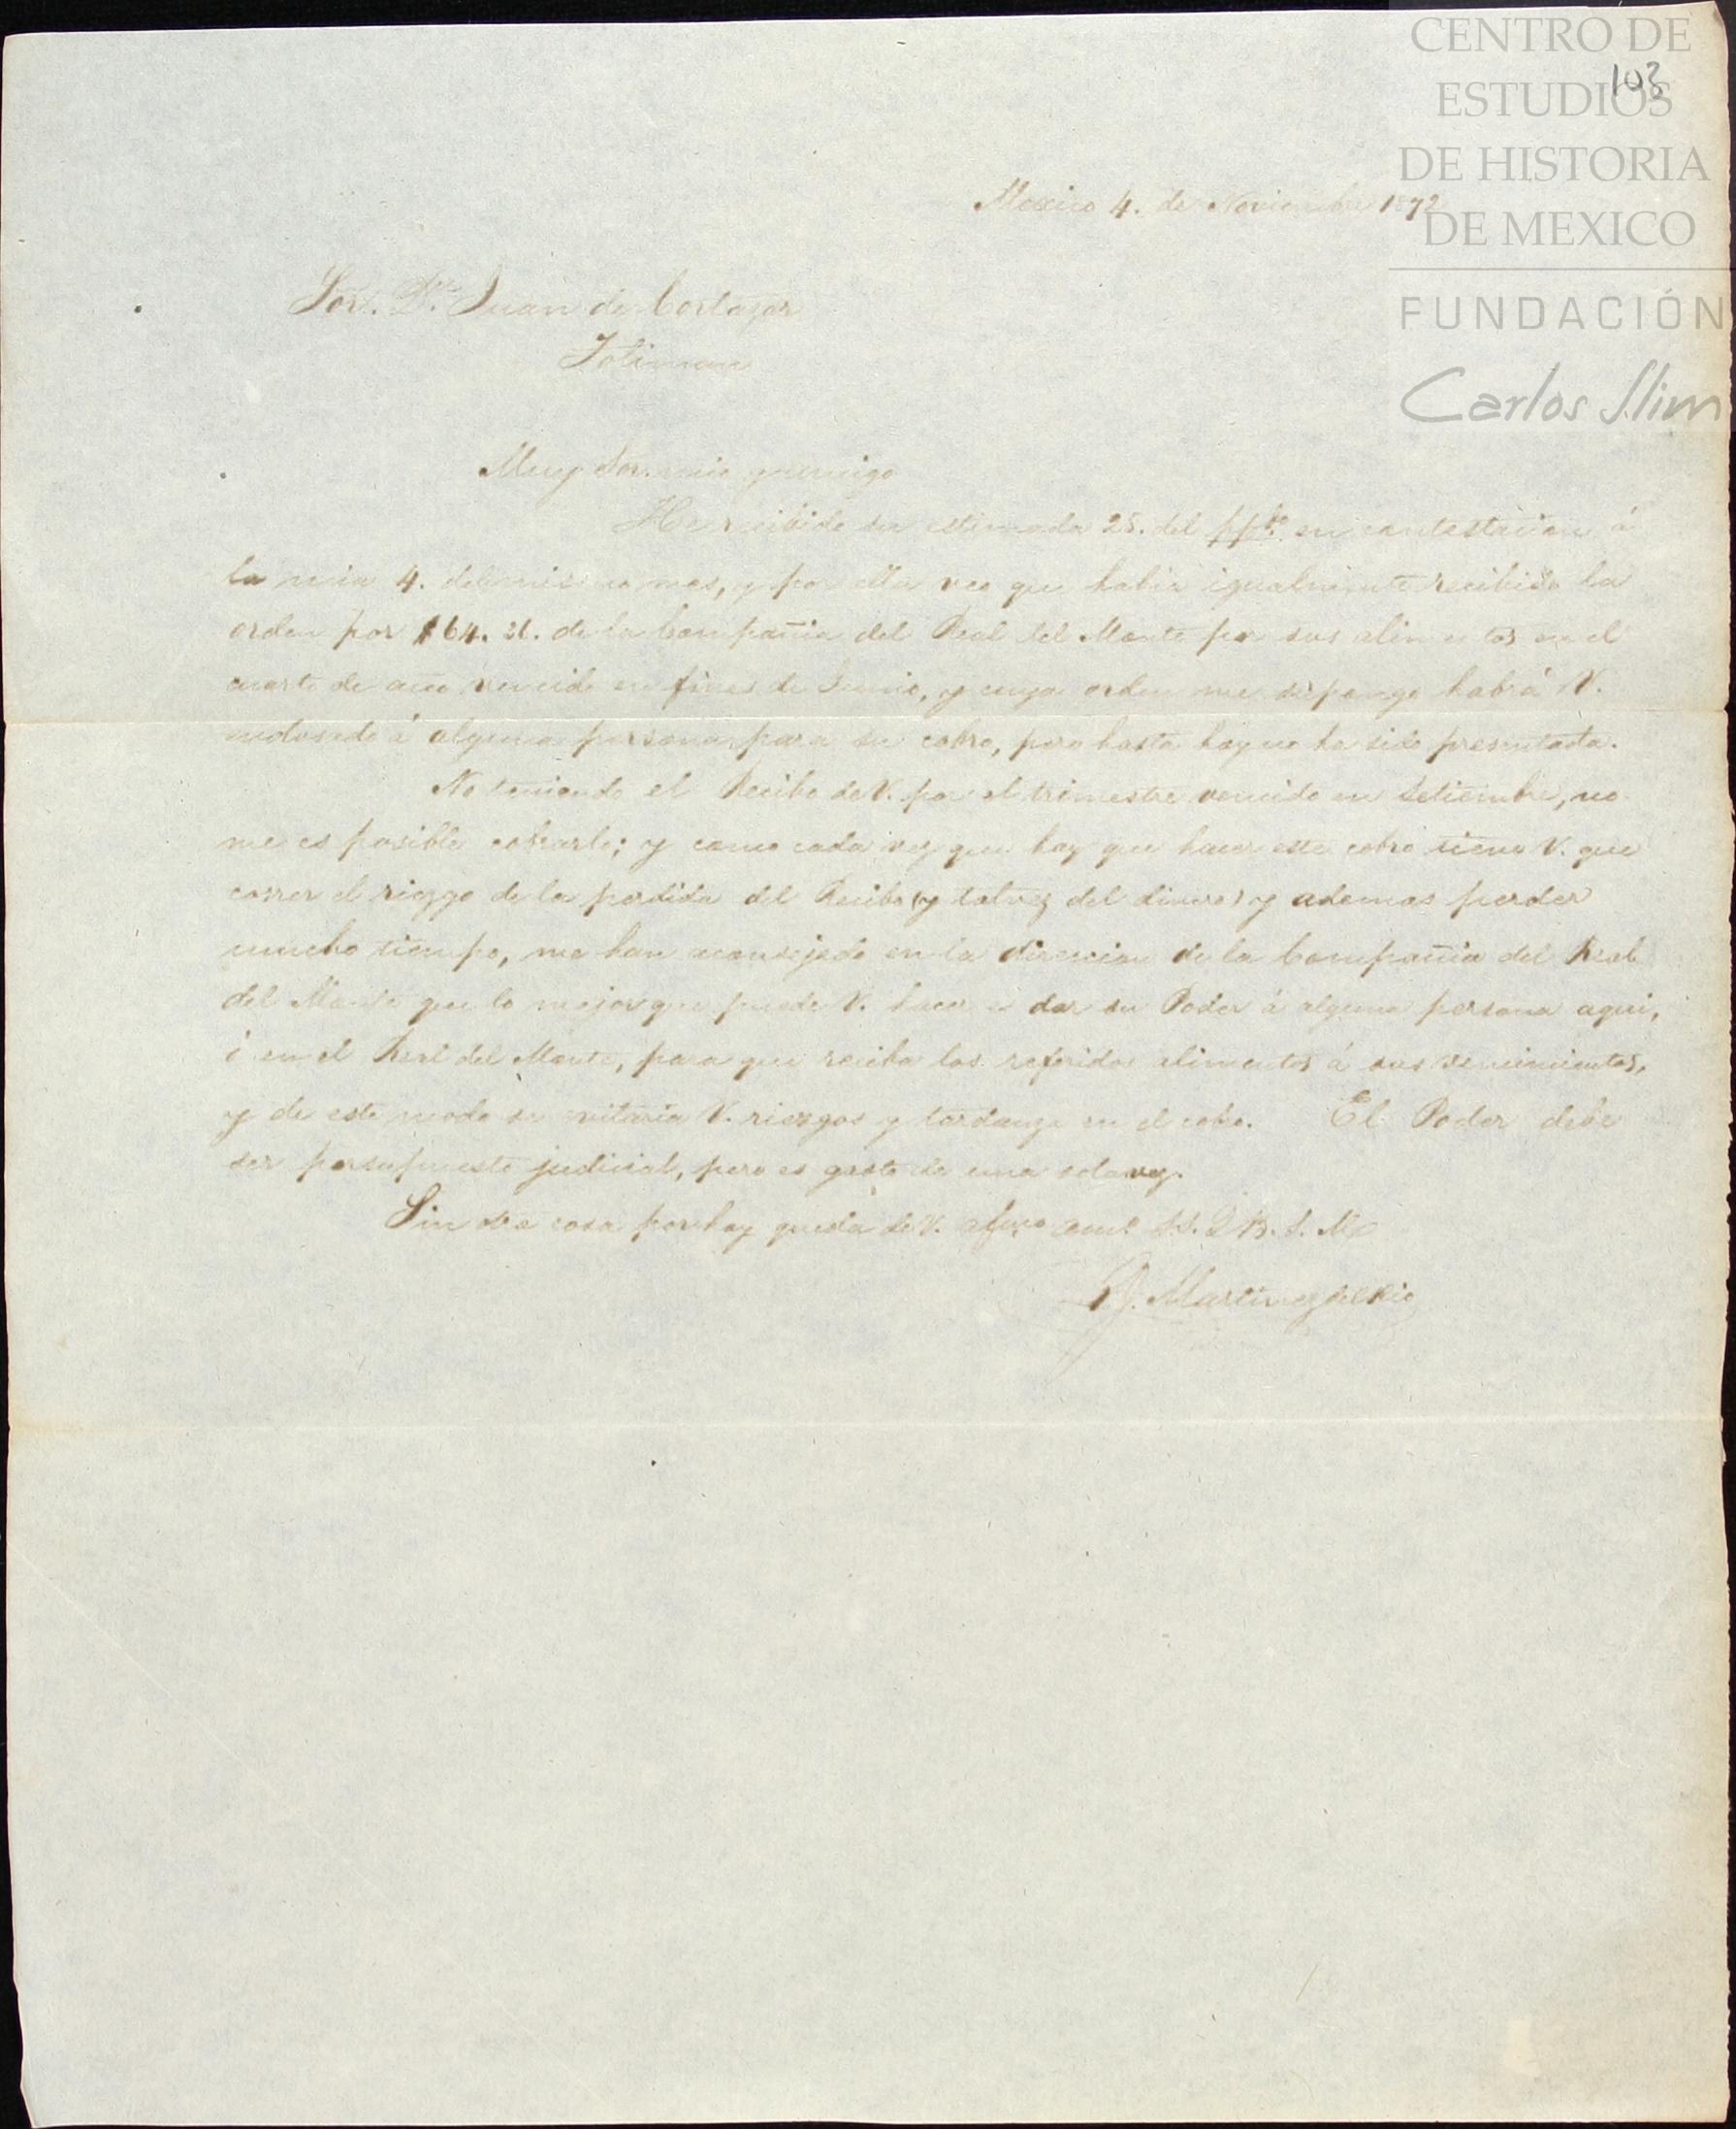 CENTRO DE
ESTUDIOS
DE HISTORIA
DE MEXICO
FUNDACIÓN
Carlos Slim
103
Mexico 4. de Noviembre 1872
Sor. Dn. Juan de Cortazar
Toliman
Muy Sor. mio y amigo
He recibido su estimada 25. del ppdo. en contestacion á
la mia 4. del mismo mes, y por ella veo que habia igualmente recibido la
orden por $64. 21. de la Compañia del Real del Monte por sus alimentos en el
cuarto de año vencido en fines de Junio, y cuya orden me supongo habrá V.
endosado á alguna persona para su cobro, pero hasta hoy no ha sido presentada.
No teniendo el Recibo de V. por el trimestre vencido en Setiembre, no
me es posible cobrarlo; y como cada vez que hay que hacer este cobro tiene V. que
correr el riezgo de la perdida del Recibo (y talvez del dinero) y ademas perder
mucho tiempo, me han aconsejado en la direccion de la Compañia del Real
del Monte que lo mejor que puede V. hacer es dar su Poder á alguna persona aqui,
ó en el Real del Monte, para que reciba los referidos alimentos á sus vencimientos,
y de este modo se evitaria V. riezgos y tardanza en el cobro. El Poder debe
ser porsupuesto judicial, pero es gasto de una sola vez.
Sin otra cosa por hoy queda de V. afmo amo. S.S. Q B. S. M.
J. Martinez del Rio